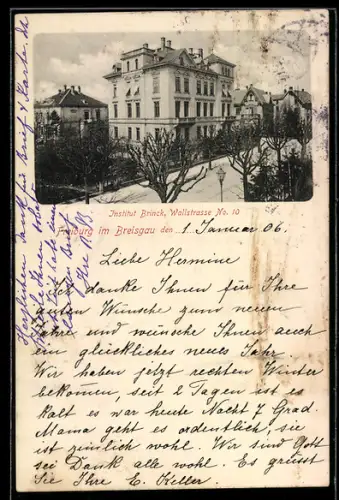 Institut Brinck, Wallstrasse No. 10
Freiburg im Breisgau den 1. Januar 06.
Liebe Hermine
Ich danke Ihnen für Ihre
guten Wünsche zum neuen
Jahre und wünsche Ihnen auch
ein glückliches neues Jahr.
Wir haben jetzt rechten Winter
bekommen, seit 2 Tagen ist es
kalt es war heute Nacht 7 Grad.
Mama geht es ordentlich, sie
ist zimlich wohl. Wir sind Gott
sei Dank alle wohl. Es grüsst
Sie Ihre E. Keller.
Herzlichen Dank für Brief & Karte, die